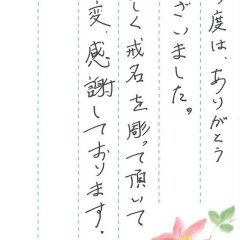 度は、ありがとう
ざいました。
しく戒名を彫って頂いて
変、感謝しております。